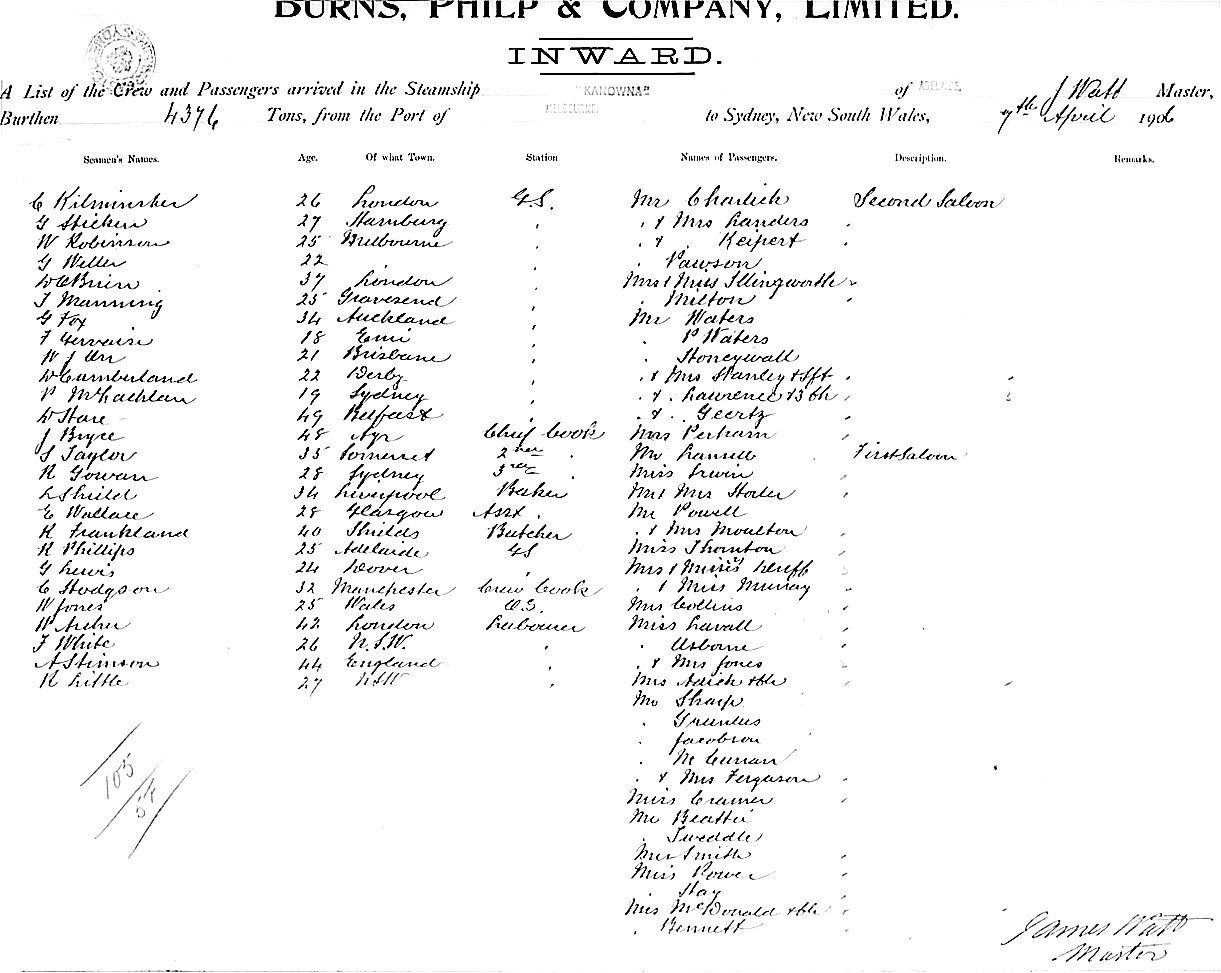 BURNS, PHILP & COMPANY, LIMITED.
INWARD.
A List of the Crew and Passengers arrived in the Steamship "KANOWNA" of ADELAIDE, J Watt Master,
Burthen 4376 Tons, from the Port of MELBOURNE. to Sydney, New South Wales, 7th April 1906
Seamen's Names. Age. Of what Town. Station Names of Passengers. Description. Remarks.
C Kilminster 26 London G.S. Mr Charlick Second Saloon
G Sticken 27 Hamburg " " & Mrs Landers "
W Robinson 25 Melbourne " " & " Keipert "
G Weller 22 " " Pawson
W O'Brien 37 London " Mrs & Miss Illingworth "
T Manning 25 Gravesend " " Milton
G Fox 34 Auckland " Mr Waters
F Gervaise 18 " " P Waters
W J Orr 21 Brisbane " " Stoneywall
W Cumberland 22 Derby " " & Mrs Stanley & "
P McLachlan 19 Sydney " " & " Laurence & 3 ch "
W Hare 49 Belfast " & " Geertz "
J Bryce 48 Ayr Chief Cook Mrs Perham "
S Taylor 35 Somerset 2nd " Mr First Saloon
R Gowan 28 Sydney 3rd Miss Irwin "
L Shield 34 Liverpool Baker Mr & Mrs "
E Wallace 28 Glasgow Asst " Mr Powell
R Frankland 40 Shields Butcher " & Mrs Moulton "
R Phillips 25 Adelaide GS Miss Thornton "
G Lewis 24 Dover " Mrs & Misses Luff "
C Hodgson 32 Manchester Crew Cook " & Miss Murray "
W Jones 25 Wales O.S. Mrs Collins "
W Archer 42 London Labourer Miss Lavall "
F White 26 N.S.W. " " Osborne "
A Stimson 44 England " " & Mrs Jones "
R Little 27 NSW " Mrs & ch "
Mr Sharp
" Greenlees
" Jacobson
" McCurran
" & Mrs Ferguson "
Miss Cramer "
Mr Beattie
" Tweddle
Mrs Smith "
Miss Power "
" Hay "
Mrs McDonald & ch "
" Bennett "
105
57
James Watt
Master